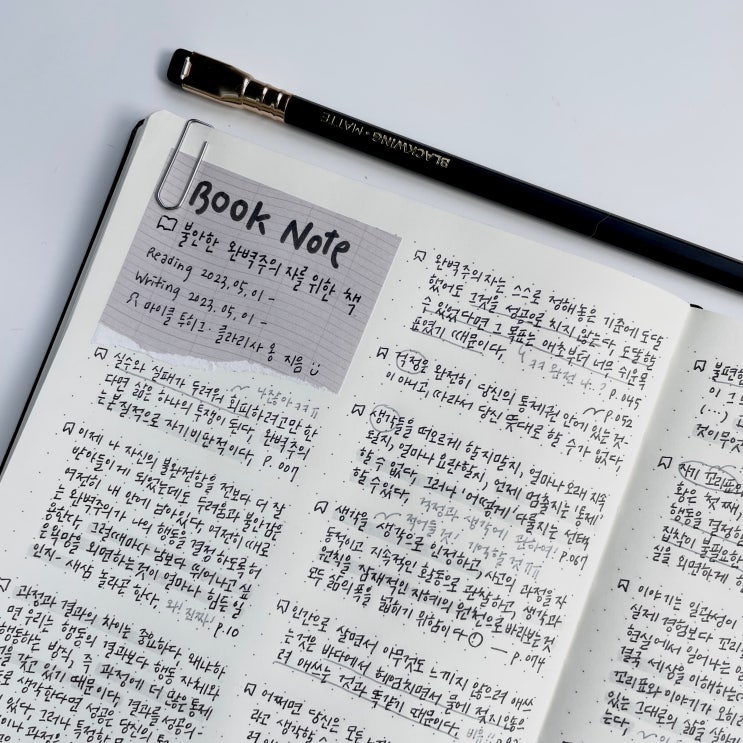 BLACKWING · MATTE
Book Note
불안한 완벽주의 자를 위한 책
Reading 2023.05.01 -
Writing 2023.05.01 -
마이클 투히그 · 클라리사 옹 지음
실수와 실패가 두려워 회피하려고만 한
다면 삶은 하나의 투쟁이 된다. 완벽주의
는 본질적으로 자기비판적이다. P.007
이제 나 자신의 불완전함을 전보다 더 잘
받아들이게 되었는데도 두려움과 불안감은
여전히 내 안에 남아있다. 여전히 때로
는 완벽주의가 나의 행동을 결정하도록 허
용한다. 그럴때마다 남보다 뛰어나고 싶
은 욕망을 외면하는것이 얼마나 힘든 일
인지 - 새삼 놀라곤한다. 왜 진짜! P.10
과정과 결과의 차이는 중요하다. 왜냐하
면 우리는 행동의 결과보다 행동 자체와
행동하는 방식, 즉 과정에 더 많은 통제
을 갖고 있기 때문이다. 결과를 성공의
로 생각한다면 성공은 당신의
있다. 그러나 특정한
이나 과정을
완벽주의자는 스스로 정해놓은 기준에 도달
했어도 그것을 성공으로 치지 않는다. 도달할
수 있었다면 그 목표는 애초부터 너무 쉬운목
표였기 때문이다. ㅋㅋ 완전 나..? P.045
걱정은 완전히 당신의 통제권 안에 있는 것
이 아니고, 따라서 당신 뜻대로 할 수가 없다. P.052
생각들을 떠오르게 할지말지, 얼마나 오래 지속
될지, 얼마나 요란할지, 언제 멈출지는 '통제'
할 수 없다. 그러나 '어떻게' 다룰지는 선택
할 수 있다. 걱정과 생각에 관하여! P.067
생각을 생각으로 인정하고, 사고의 과정을 자
동적이고 지속적인 활동으로 관찰하고, 생각과
원칙을 잠재적인 지혜의 원천으로 바라보는 것
모두 삶의 폭을 넓히기 위함이다 — P.074
인간으로 살면서 아무것도 느끼지 않으려 애쓰
는 것은 바다에서 헤엄치면서 물에 젖지 않으
려 애쓰는 것과 똑같기 때문이다.
어쩌면 당신은 모두
라고 생각할
불편함
이 그
(…)
것이 무엇
자기 꼬리표
황은 첫째,
행동을 결정한
집착이 불필요한
실을 외면하게
이야기는 일관성이
실제 경험보다 꼬리
현실에서 일어나는
결국 세상을 이해하는
꼬리표와 이야기가 오히
있는 그대로의 삶을 살아
는다.